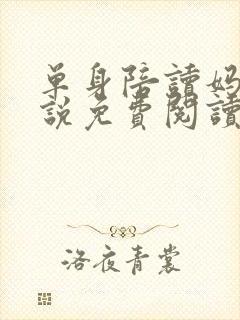 单身陪讀妈
說免費閱讀
洛夜青裳